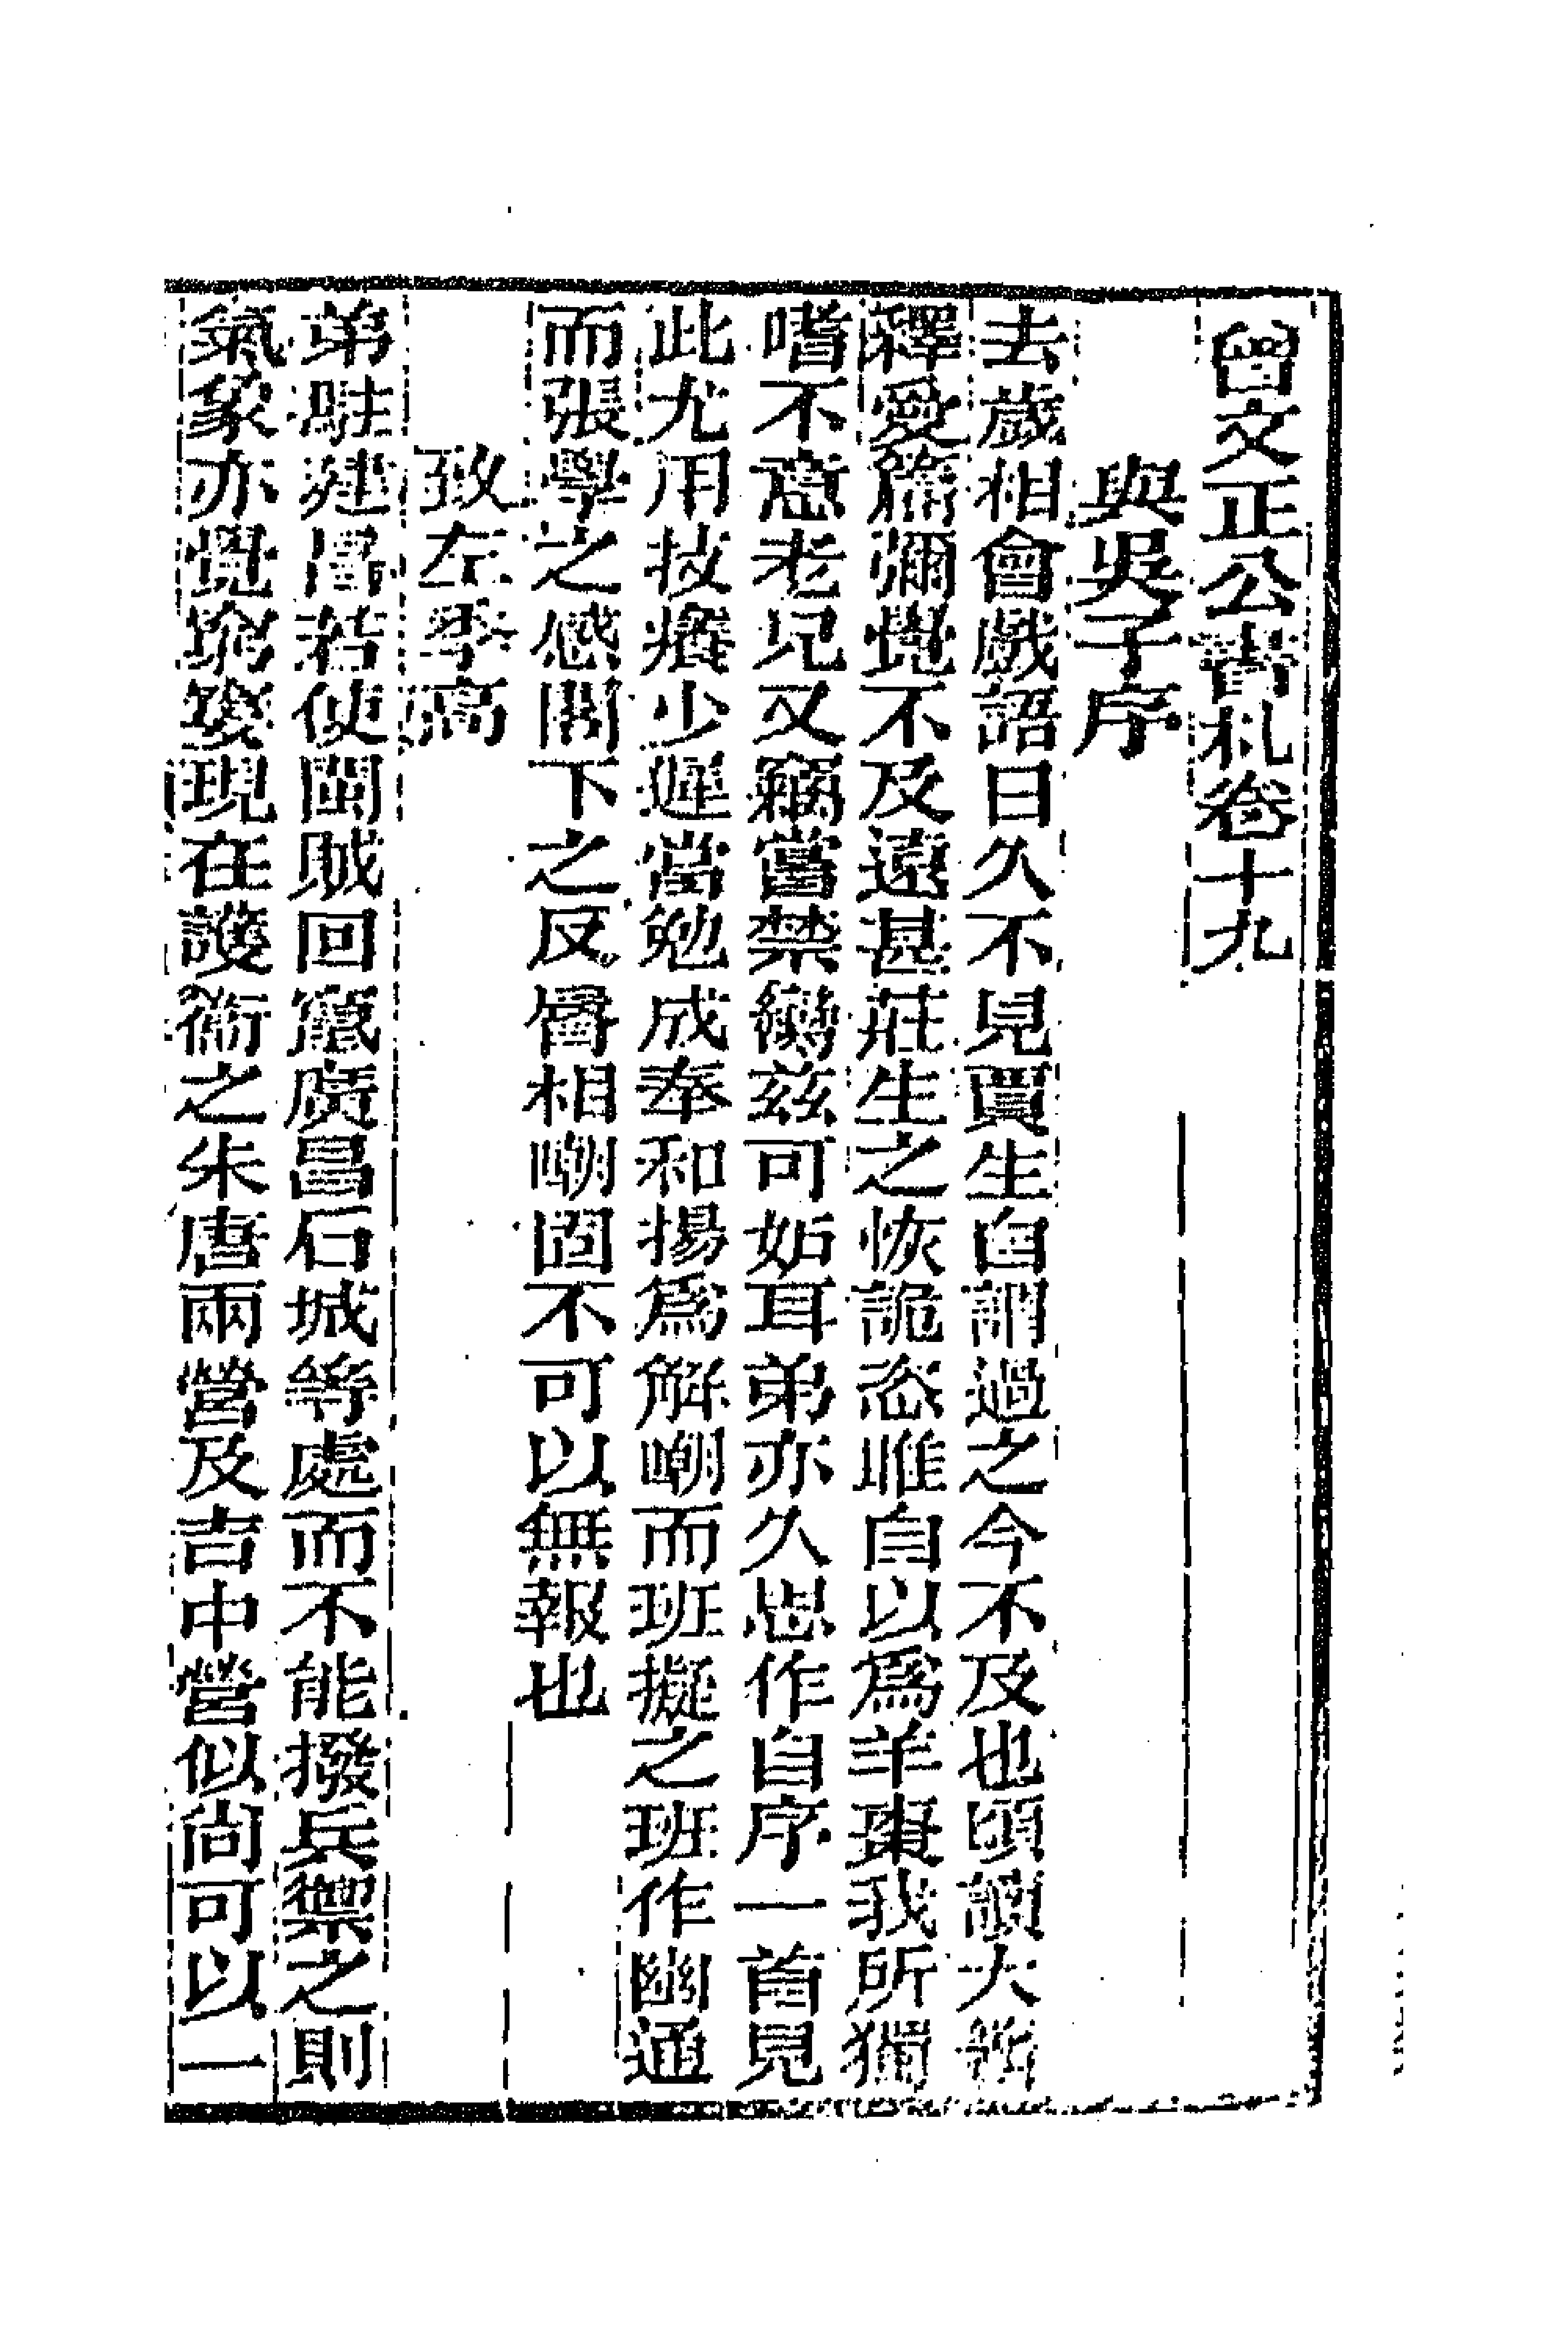 曾文正公書札卷十九
與吳子序
去歲相會戲語曰久不見賈生自謂過之今不及也頃讀大著
釋愛篇彌覺不及遠甚莊生之恢詭恣睢自以爲羊棗我所獨
嗜不意老兄又竊嘗禁臠茲可妬耳弟亦久思作自序一首見
此尤用技癢少遲當勉成奉和揚爲解嘲而班擬之班作幽通
而張學之感閣下之反脣相嘲固不可以無報也
致左季高
弟駐建昌若使閩賊回竄廣昌石城等處而不能撥兵禦之則
氣象亦覺窮蹙現在護衞之朱唐兩營及吉中營似尚可以一